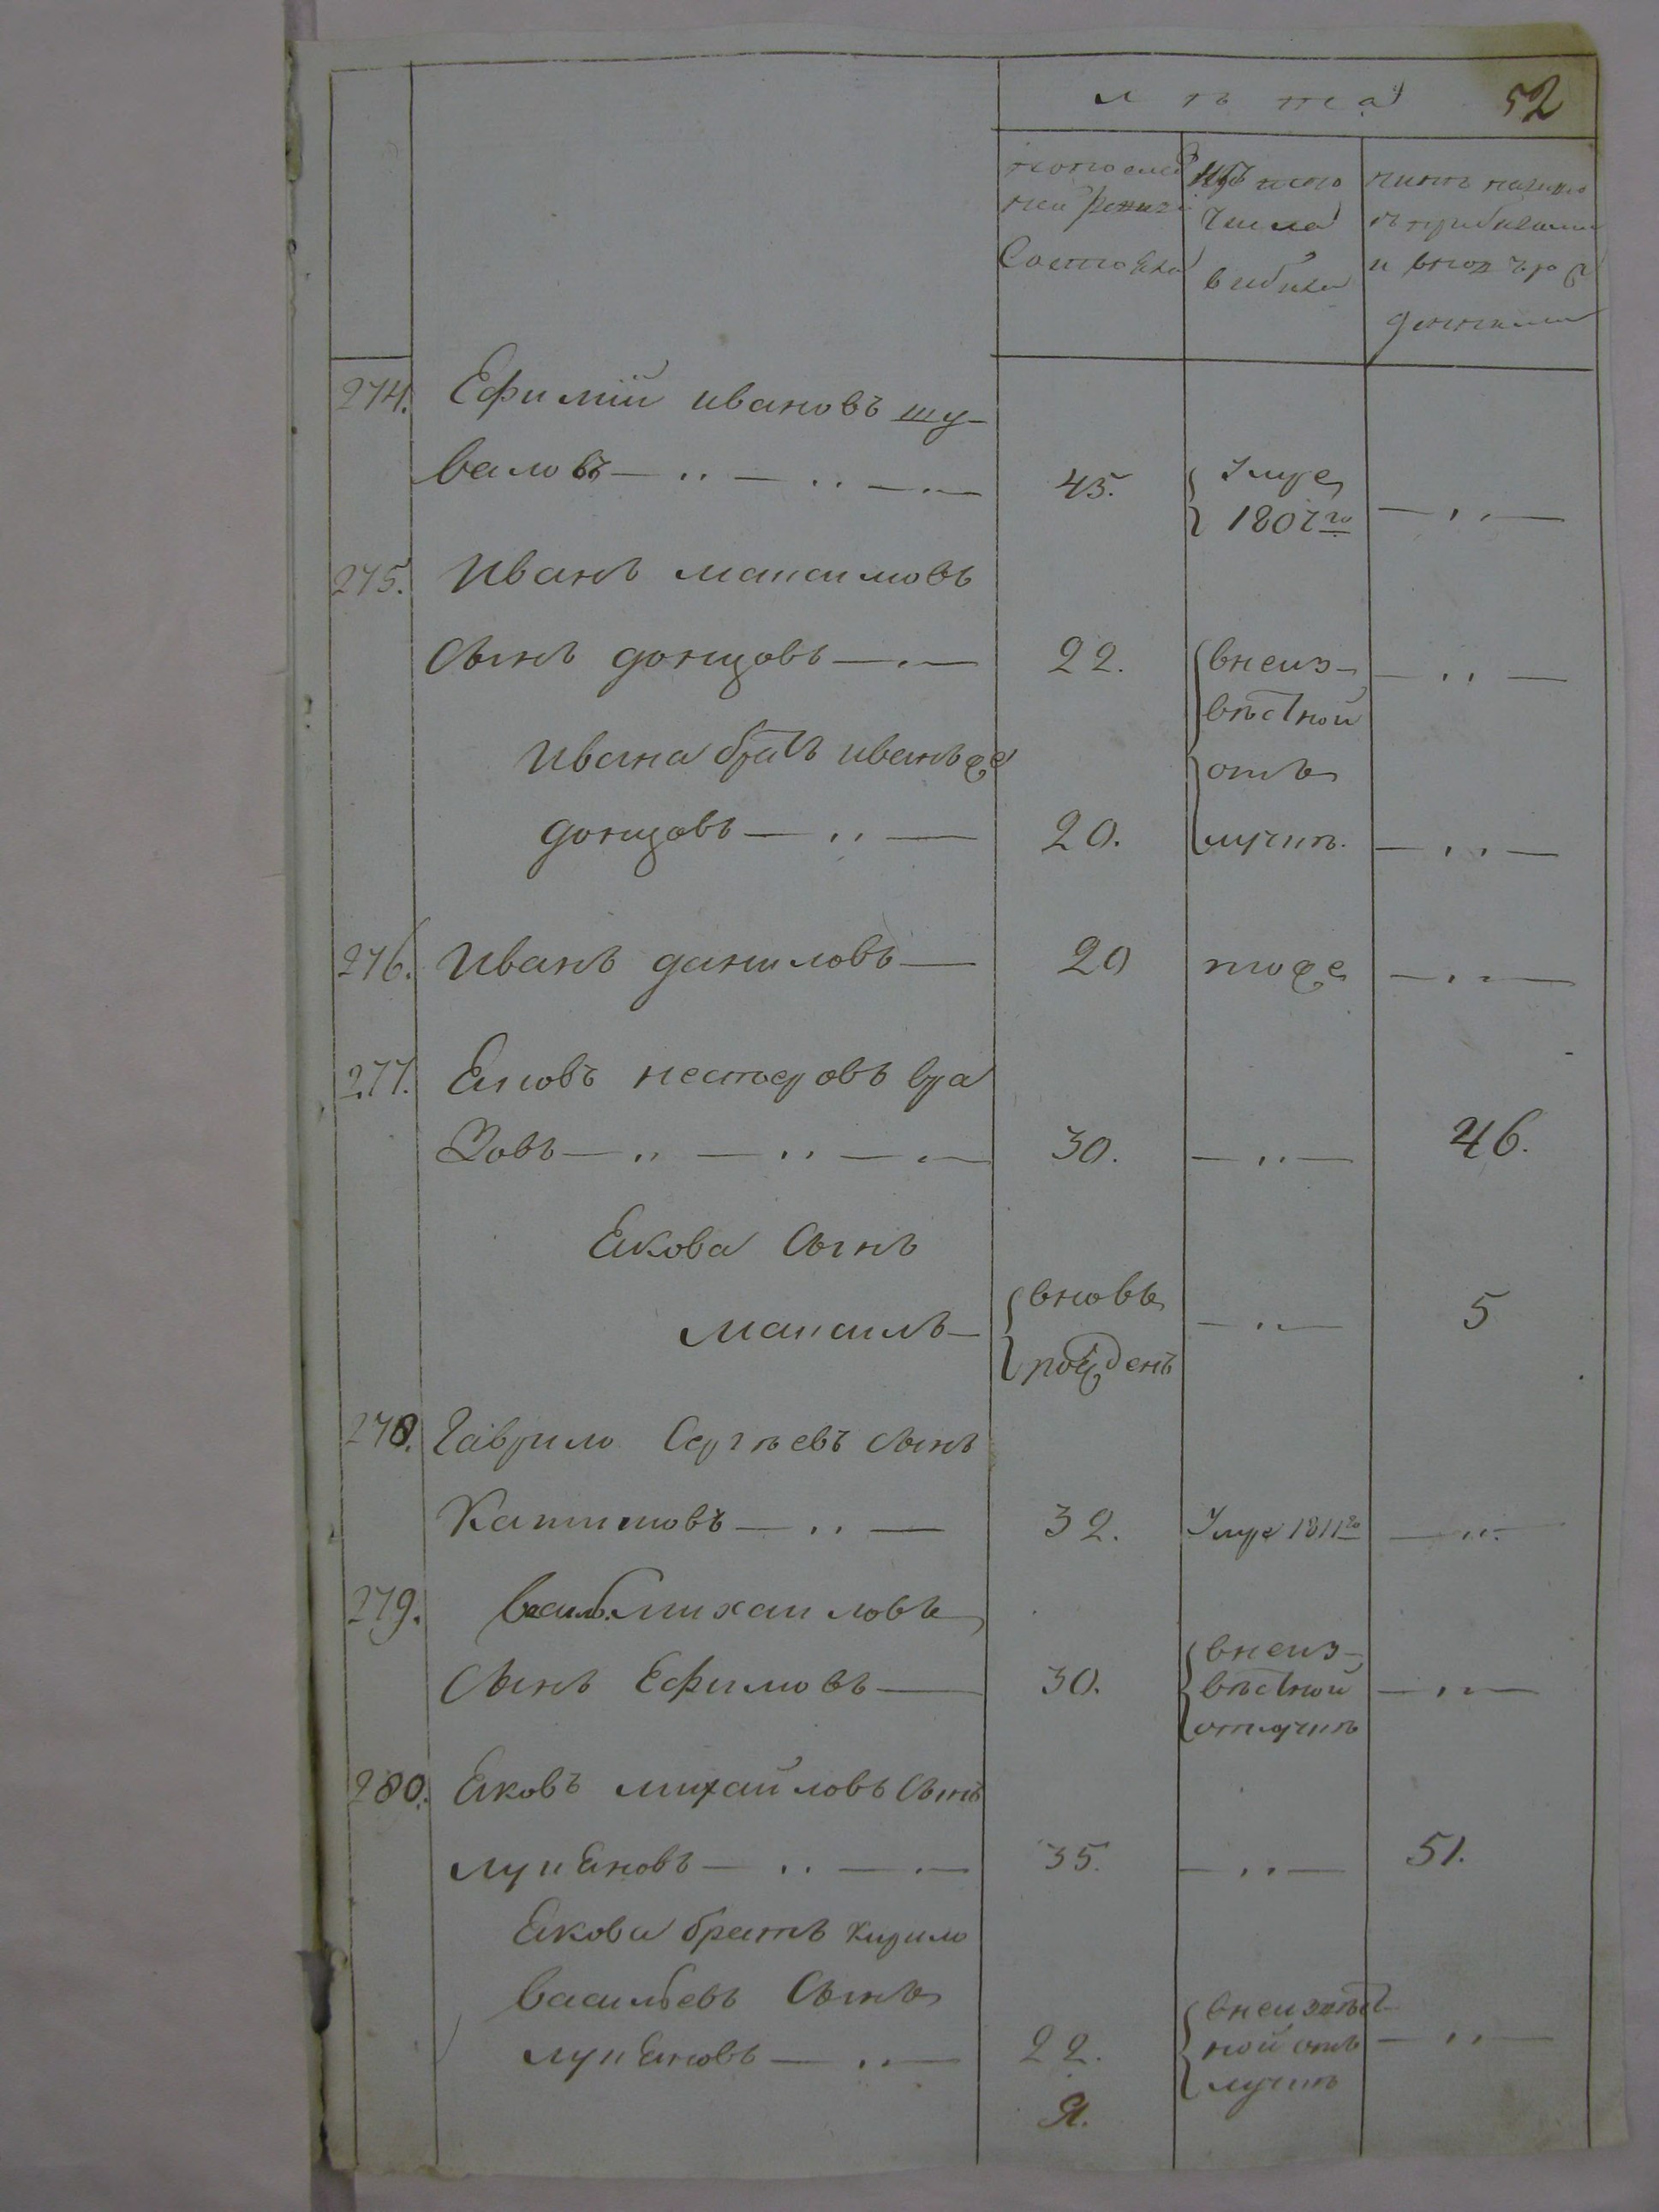 лѣта 52
попослед
ней ревизи
Состояло
изъ того
числа
выбыло
нынѣ налицо
съ прибылыми
и вновь рож
денными
274. Ефимiй ивановъ шу-
валовъ — .. — .. — .. — 45. Умре 1807го — .. —
275. Иванъ максимовъ
Сынъ донцовъ — . — 22. внеиз-
вѣстной — .. —
Ивана братъ иванъже отъ
донцовъ — .. — 20. лучкѣ. — .. —
276. Иванъ даниловъ — 20 тоже — .. —
277. Еяковъ нестеровъ вра
Зовъ — .. — .. — .. — 30. — .. — 46.
Еякова Сынъ
максимъ — вновь рожденъ — .. — 5
278. Гаврило Сергѣевъ Сынъ
— .. — 32. Умре 1811го — .. —
279. василь михаиловъ
Сынъ Ефимовъ — 30. внеиз-
вѣстной
отлучкѣ — .. —
280. Еяковъ михайловъ Сынъ
лукЕяновъ — .. — . — 35. — .. — 51.
Еякова братъ кирило
васильевъ Сынъ
лукЕяновъ — .. — 22. внеизвѣст
ной отъ
лучкѣ — .. —
Я.